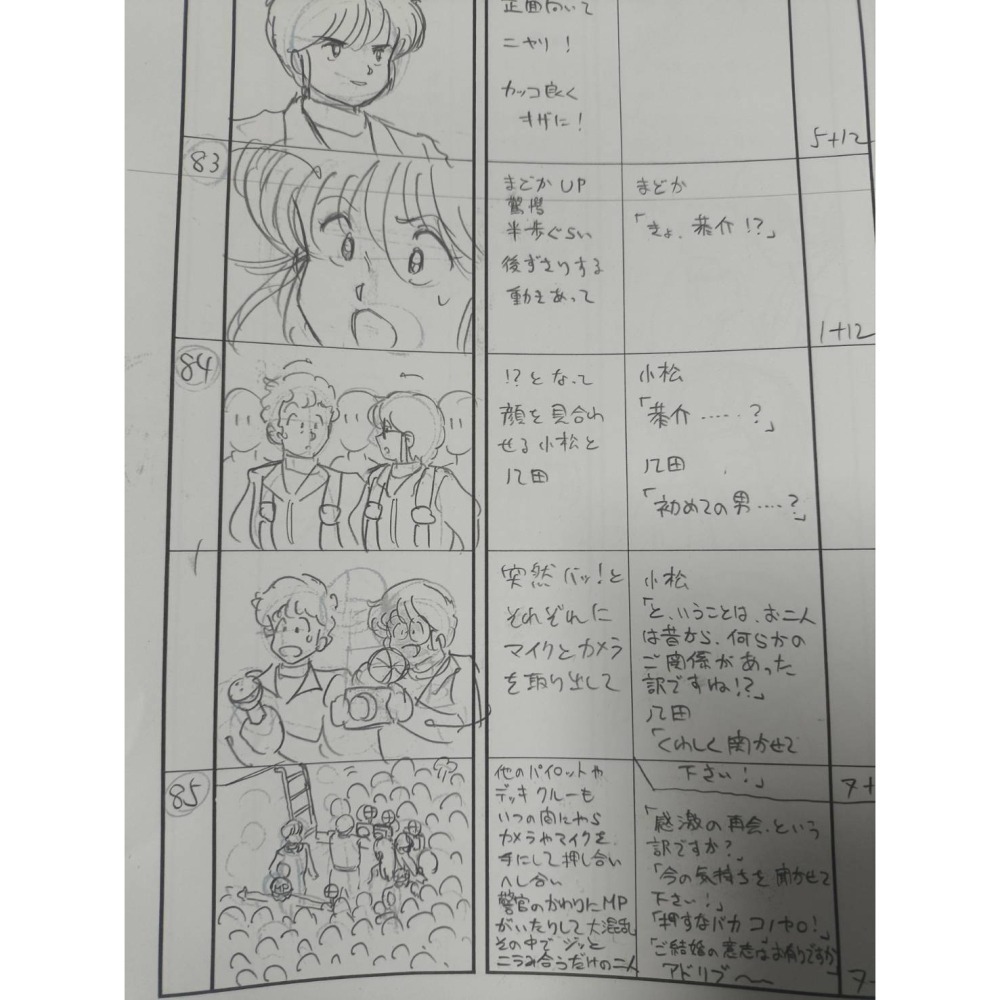 正面向いて
ニヤリ！
カッコ良く
キザに！
5+12
83
まどかUP
驚愕
半歩ぐらい
後ずさりする
動きあって
まどか
「きょ、恭介！？」
1+12
84
！？となって
顔を見合わ
せる小松と
八田
小松
「恭介……？」
八田
「初めての男……？」
突然バッ！と
それぞれに
マイクとカメラ
を取り出して
小松
「と、いうことは、お二人
は昔から、何らかの
ご関係があった
訳ですね！？」
八田
「くわしく聞かせて
下さい！」
7+
85
MP
他のパイロットや
デッキクルーも
いつの間にやら
カメラやマイクを
手にして押し合い
へし合い
警官のかわりにMP
がいたりして大混乱
その中でジッと
ニラみ合うだけの二人
「感激の再会、という
訳ですか？」
「今の気持ちを聞かせて
下さい！」
「押すなバカコノヤロ！」
「ご結婚の意志はお有りですか
アドリブ〜
7